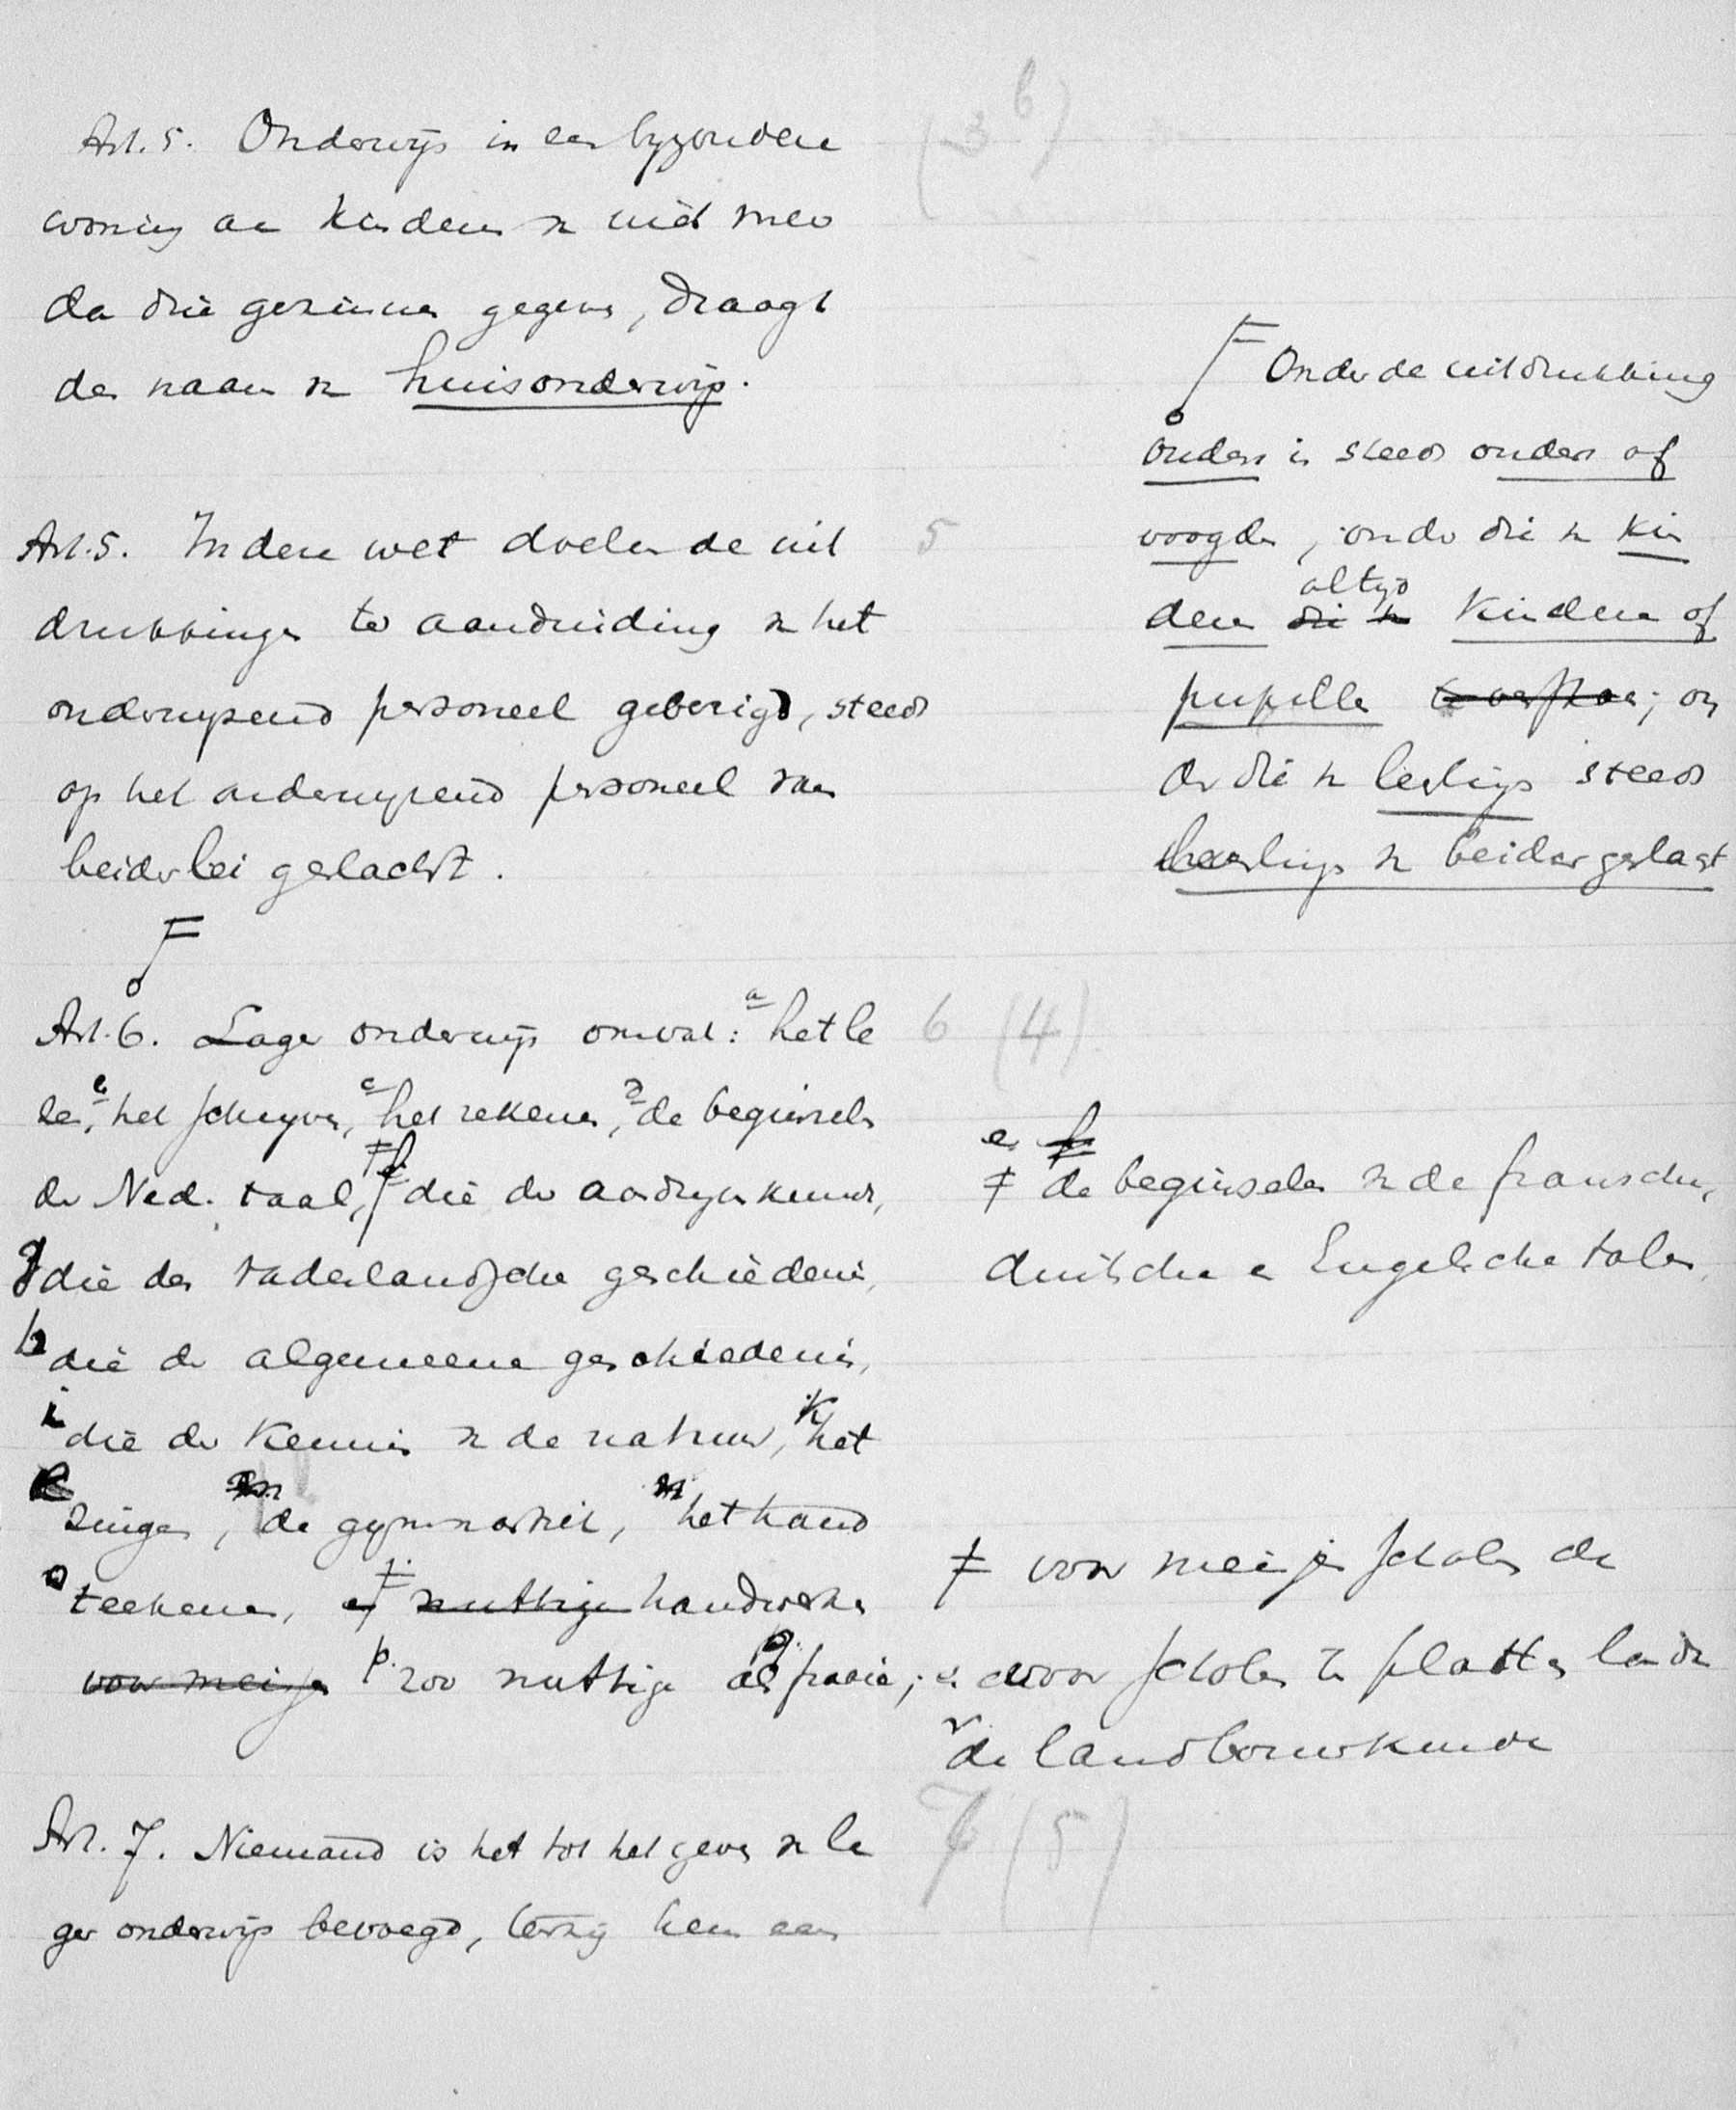 Art. 5. Onderwijs in een byzondere
woning aan kinderen van niet meer
dan drie gezinnen gegeven, draagt
den naam van huisonderwijs.
Art. 5. In deze wet doelen de uit
drukkingen ter aanduiding van het
onderwyzend personeel gebezigd, steeds
op het onderwyzend personeel van
beiderlei geslacht.
Art. 6. Lager onderwijs omvat: a het le
zen, b het schryven, c het rekenen, d de beginselen
der Ned. taal, f die der aardrijkskunde,
g die der vaderlandsche geschiedenis,
h die der algemeene geschiedenis,
i die der kennis van de natuur, k het
l zingen, m de gymnastiek, n het hand
o teekenen, en nuttige handwerken
voor meisjes p. zoo nuttige als q. fraaie;
Art. 7. Niemand is het tot het geven van la
ger onderwijs bevoegd, tenzij hem een
(3 b)
Onder de uitdrukking
ouders is steeds ouders of
voogden, onder die van kin
altyd
deren die van kinderen of
pupillen te verstaan; on
der die van leerlingen steeds
leerlingen van beider geslacht
5
6 (4)
e
de beginselen van de fransche,
duitsche en Engelsche talen,
voor meisjes scholen de
en voor scholen ten platten lande
r de landbouwkunde
7 (5)